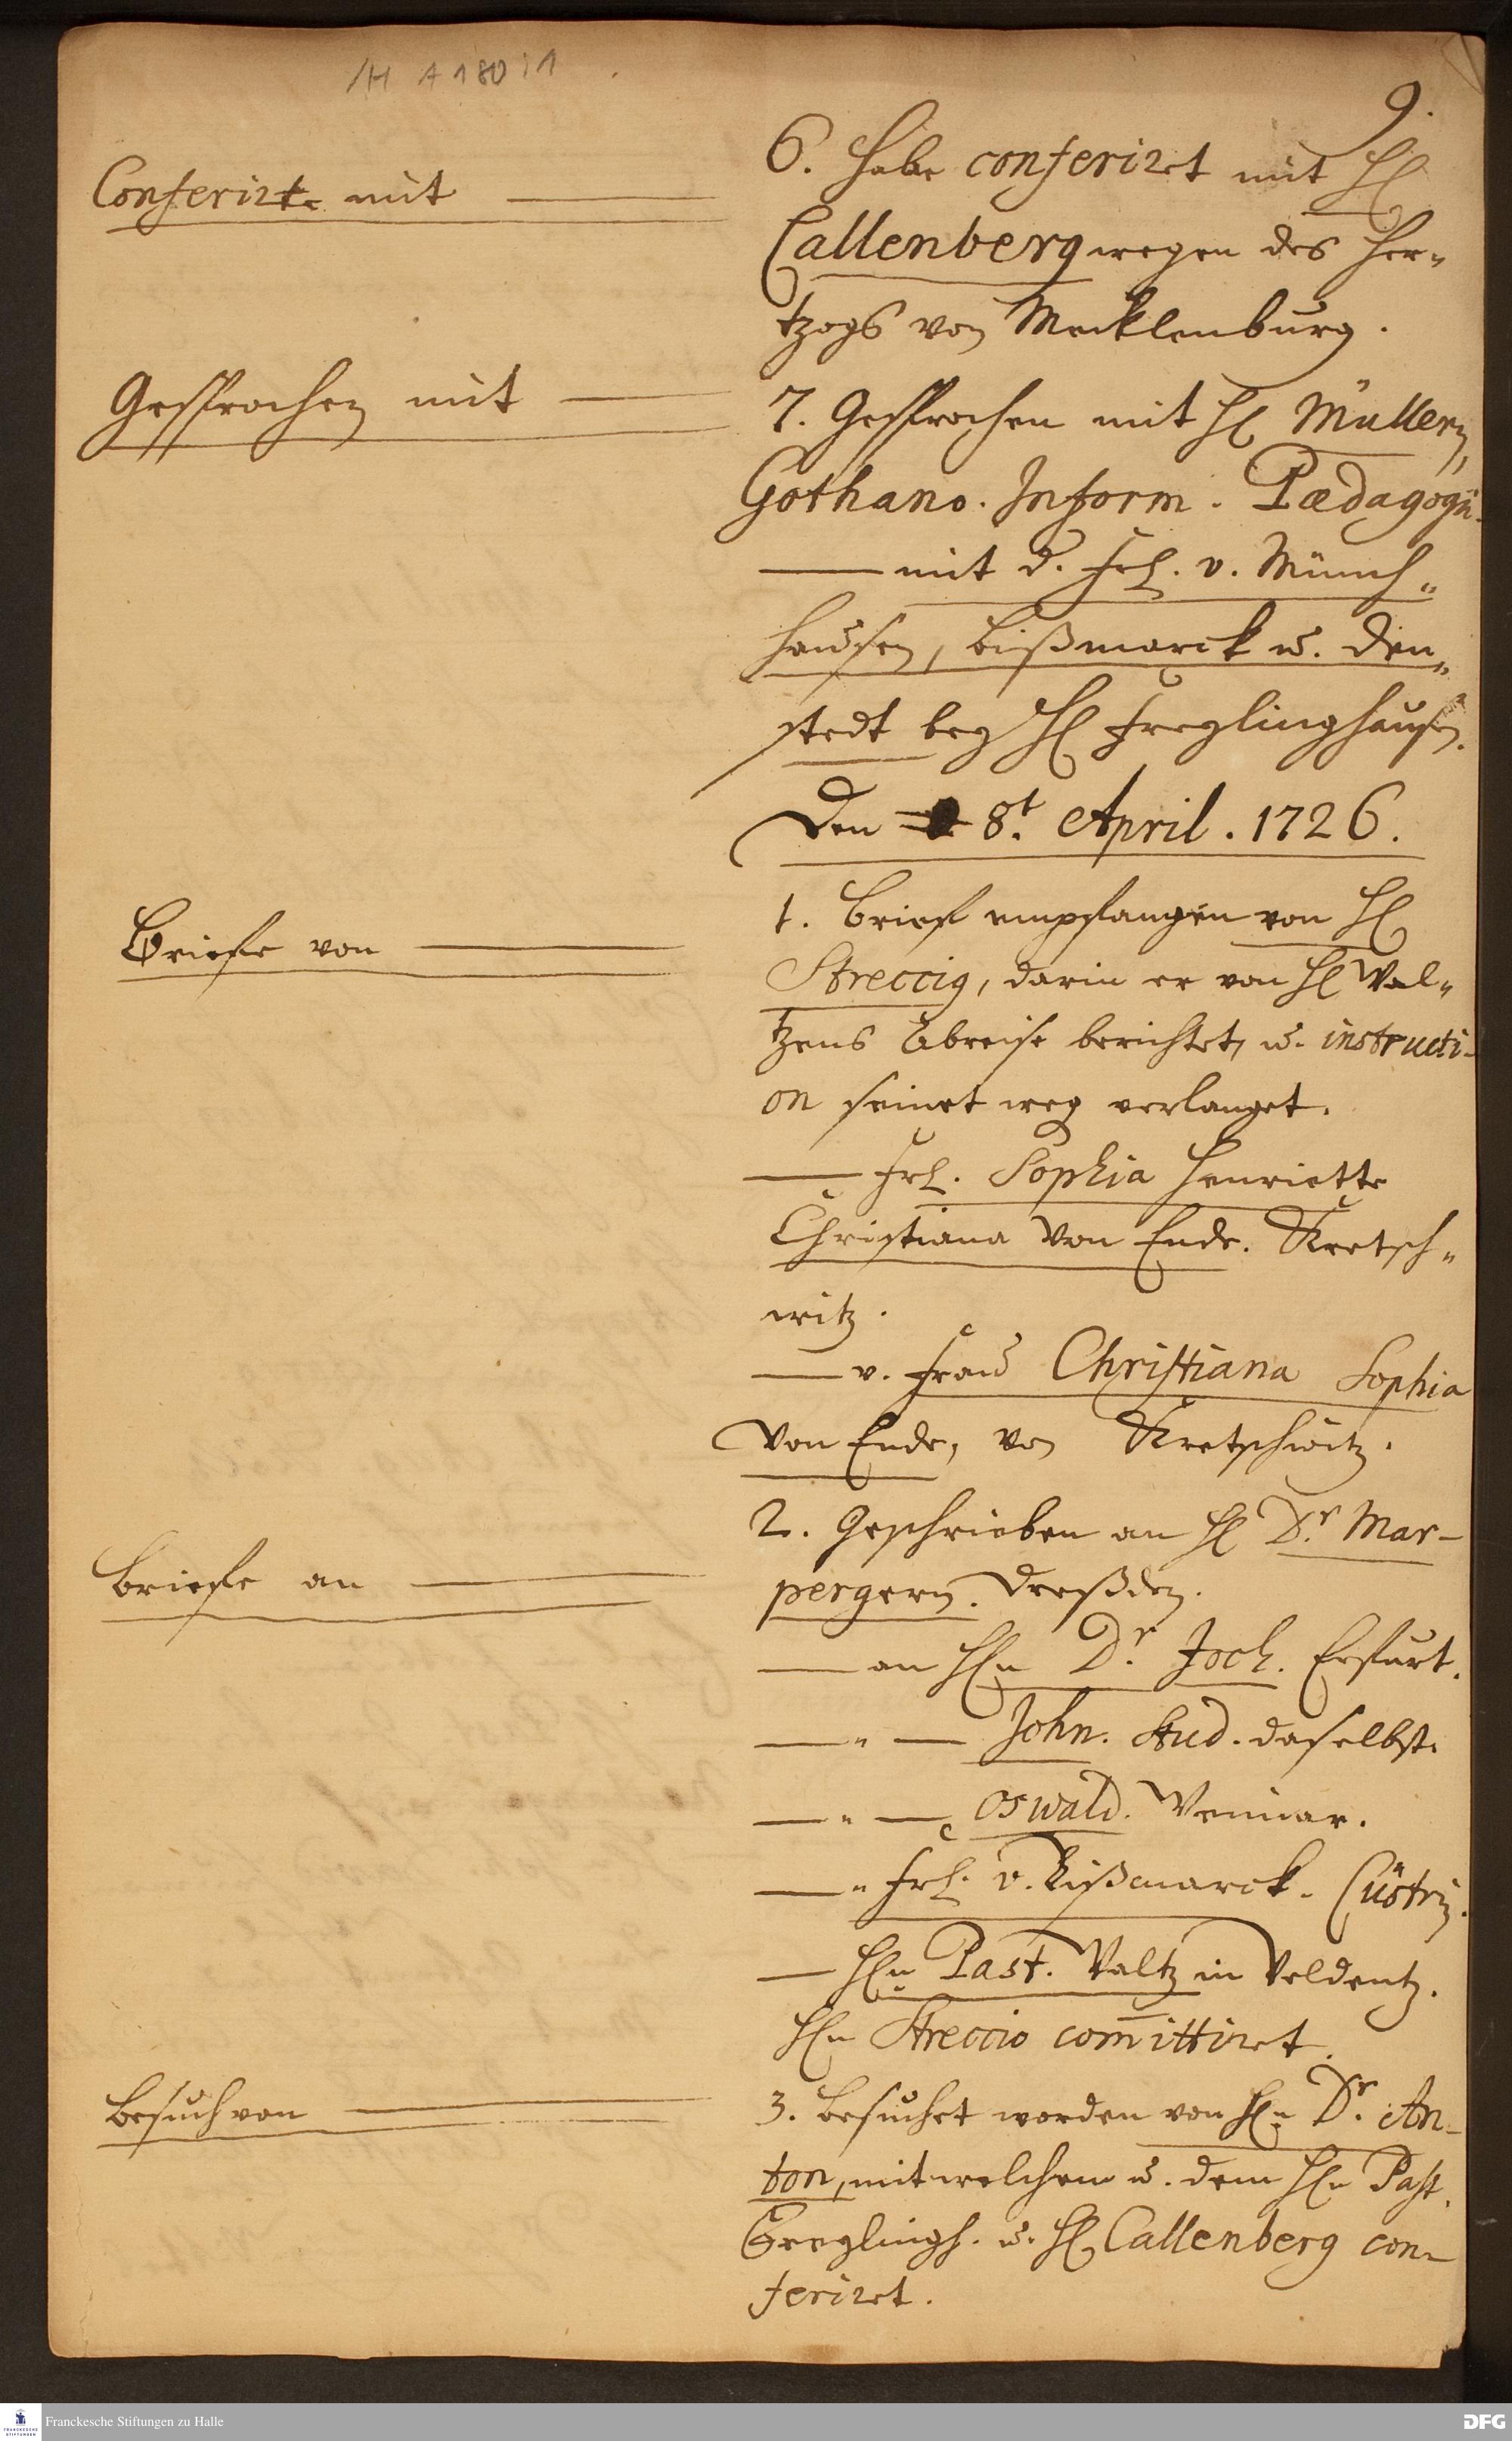 /H A 180 : 1
9.
Conferirte mit
6. Habe conferiret mit H.
Callenberg wegen des Her-
tzogs von Mecklenburg.
Gesprochen mit
7. Gesprochen mit H. Müllern,
Gothano. Inform. Pædagogii.
mit d. Frl. v. Münch-
hausen, Bißmarck u. Den-
stedt bey H. Freylinghausen.
Den 8t. April. 1726.
Briefe von
1. Brief empfangen von H.
Streccig, darin er von H. Wal-
tzens Abreise berichtet, u. instructi-
on seinet weg verlanget.
Frl. Sophia Henriette
Christiana von Ende. Kretsch-
witz.
v. Frau Christiana Sophia
von Ende, von Kretschwitz.
Briefe an
2. Geschrieben an H. Dr. Mar-
pergern. Dreßden.
an Hn Dr. Joch. Erfurt.
" John. Stud. daselbst.
" Oswald. Weimar.
" Frl. v. Bißmarck. Cüstrin.
Hn Past. Waltz in Veldentz.
Hn Streccio com̅ittiret.
Besuch von
3. Besuchet worden von Hn Dr. An-
ton, mit welchem u. dem Hn Past.
Freylingh. u. H. Callenberg con-
feriret.
Franckesche Stiftungen zu Halle
DFG